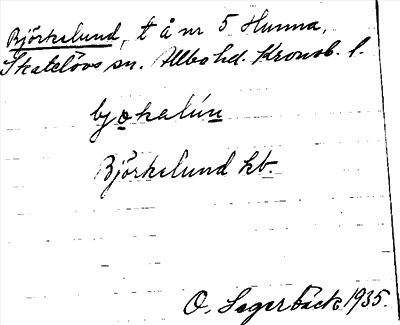 Björkelund, t å nr 5 Hunna,
Skatelövs sn. Allbo hd. Kronob. l.
bjǫkalún
Björkelund kb.
O. Segerbäck 1935.